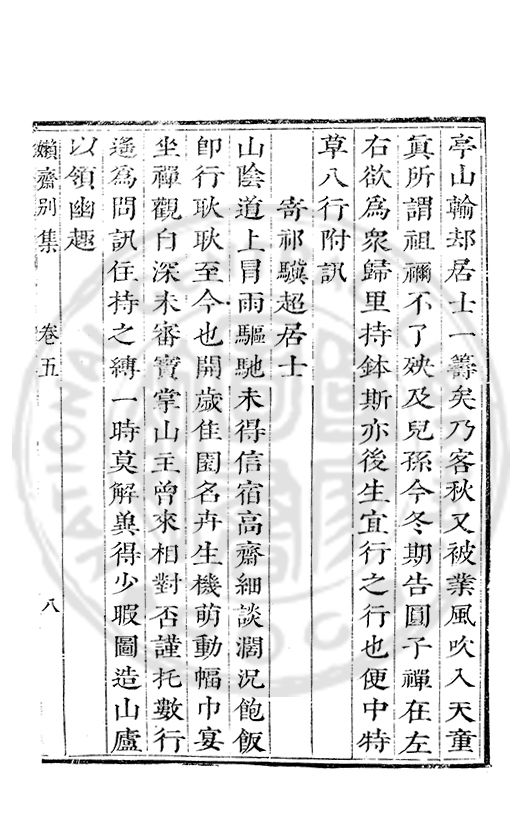 亭山翰却居士一籌矣乃客秋又被業風吹入天童
眞所謂祖禰不了殃及兒孫今冬期告圓子禪在左
右欲為衆歸里持鉢斯亦後生宜行之行也便中特
草八行附訊
寄祁驥超居士
山陰道上冒雨驅馳未得信宿高齋細談濶況飽飯
卽行耿耿至今也開歲佳園名卉生機萌動幅巾宴
坐禪觀自深未審寶掌山主曾來相對否謹托數行
遙為問訊住持之縛一時莫解兾得少暇圖造山廬
以領幽趣
嬾齋別集 卷五 八